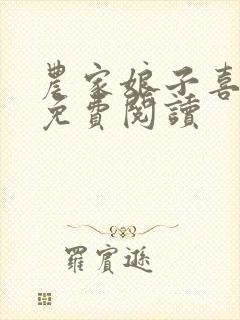 農家娘子喜
免費閱讀
羅賓遜